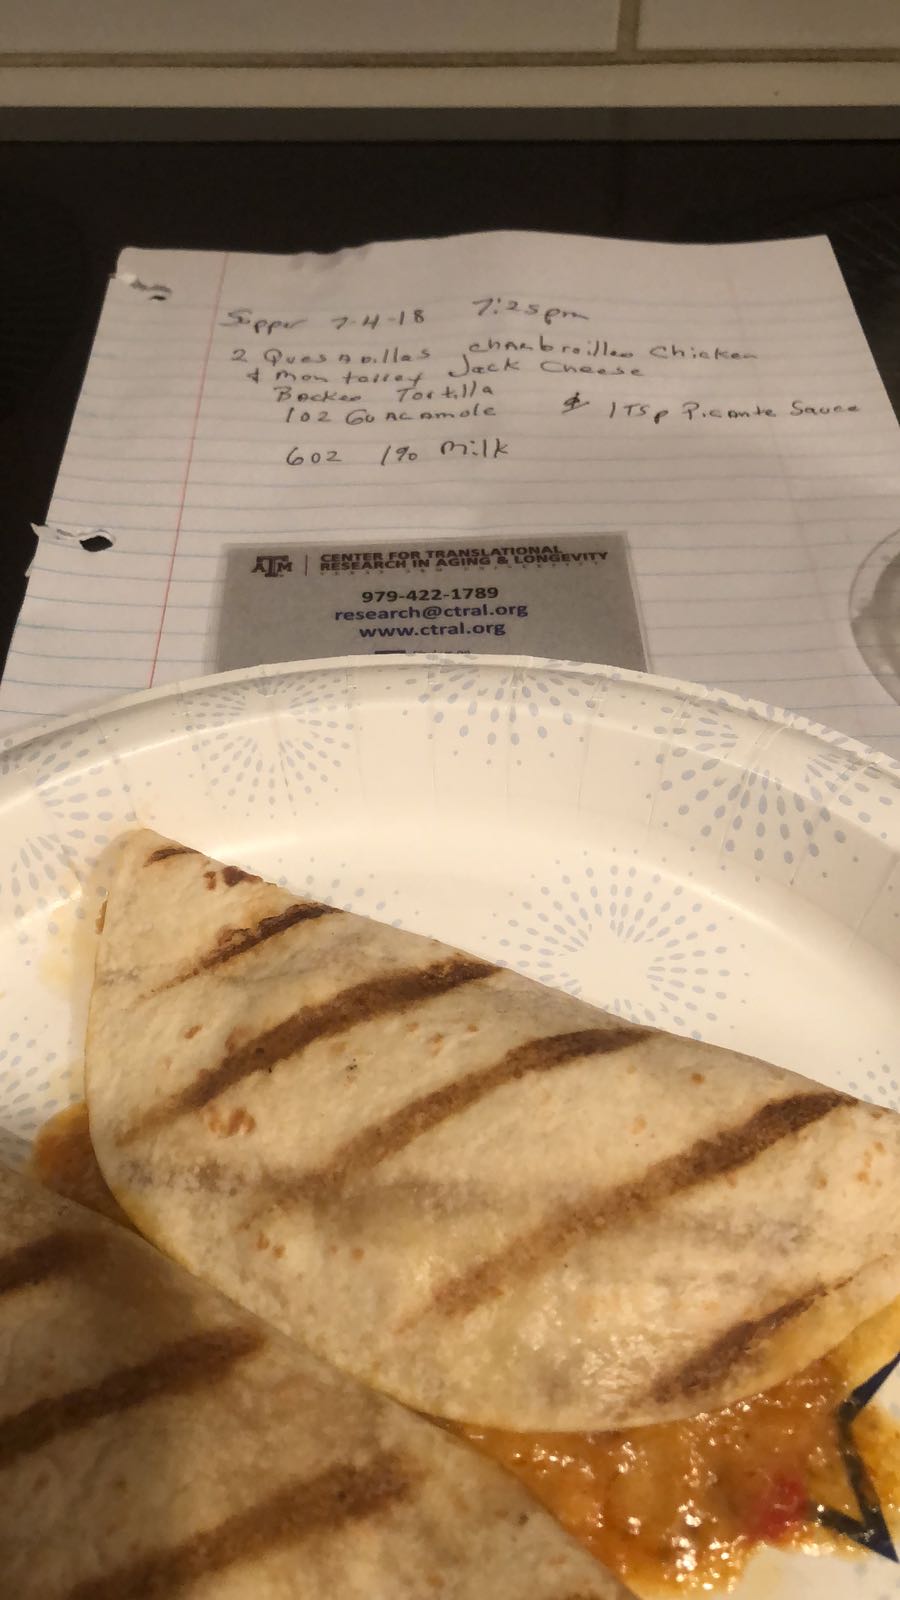 Supper 7-4-18 7:25pm
2 Quesadillas Charbroiled Chicken
& Monterrey Jack Cheese
Backed Tortilla
1 oz Guacamole & 1 Tsp Picante Sauce
6 oz 1% Milk
ATM | CENTER FOR TRANSLATIONAL
RESEARCH IN AGING & LONGEVITY
979-422-1789
research@ctral.org
www.ctral.org